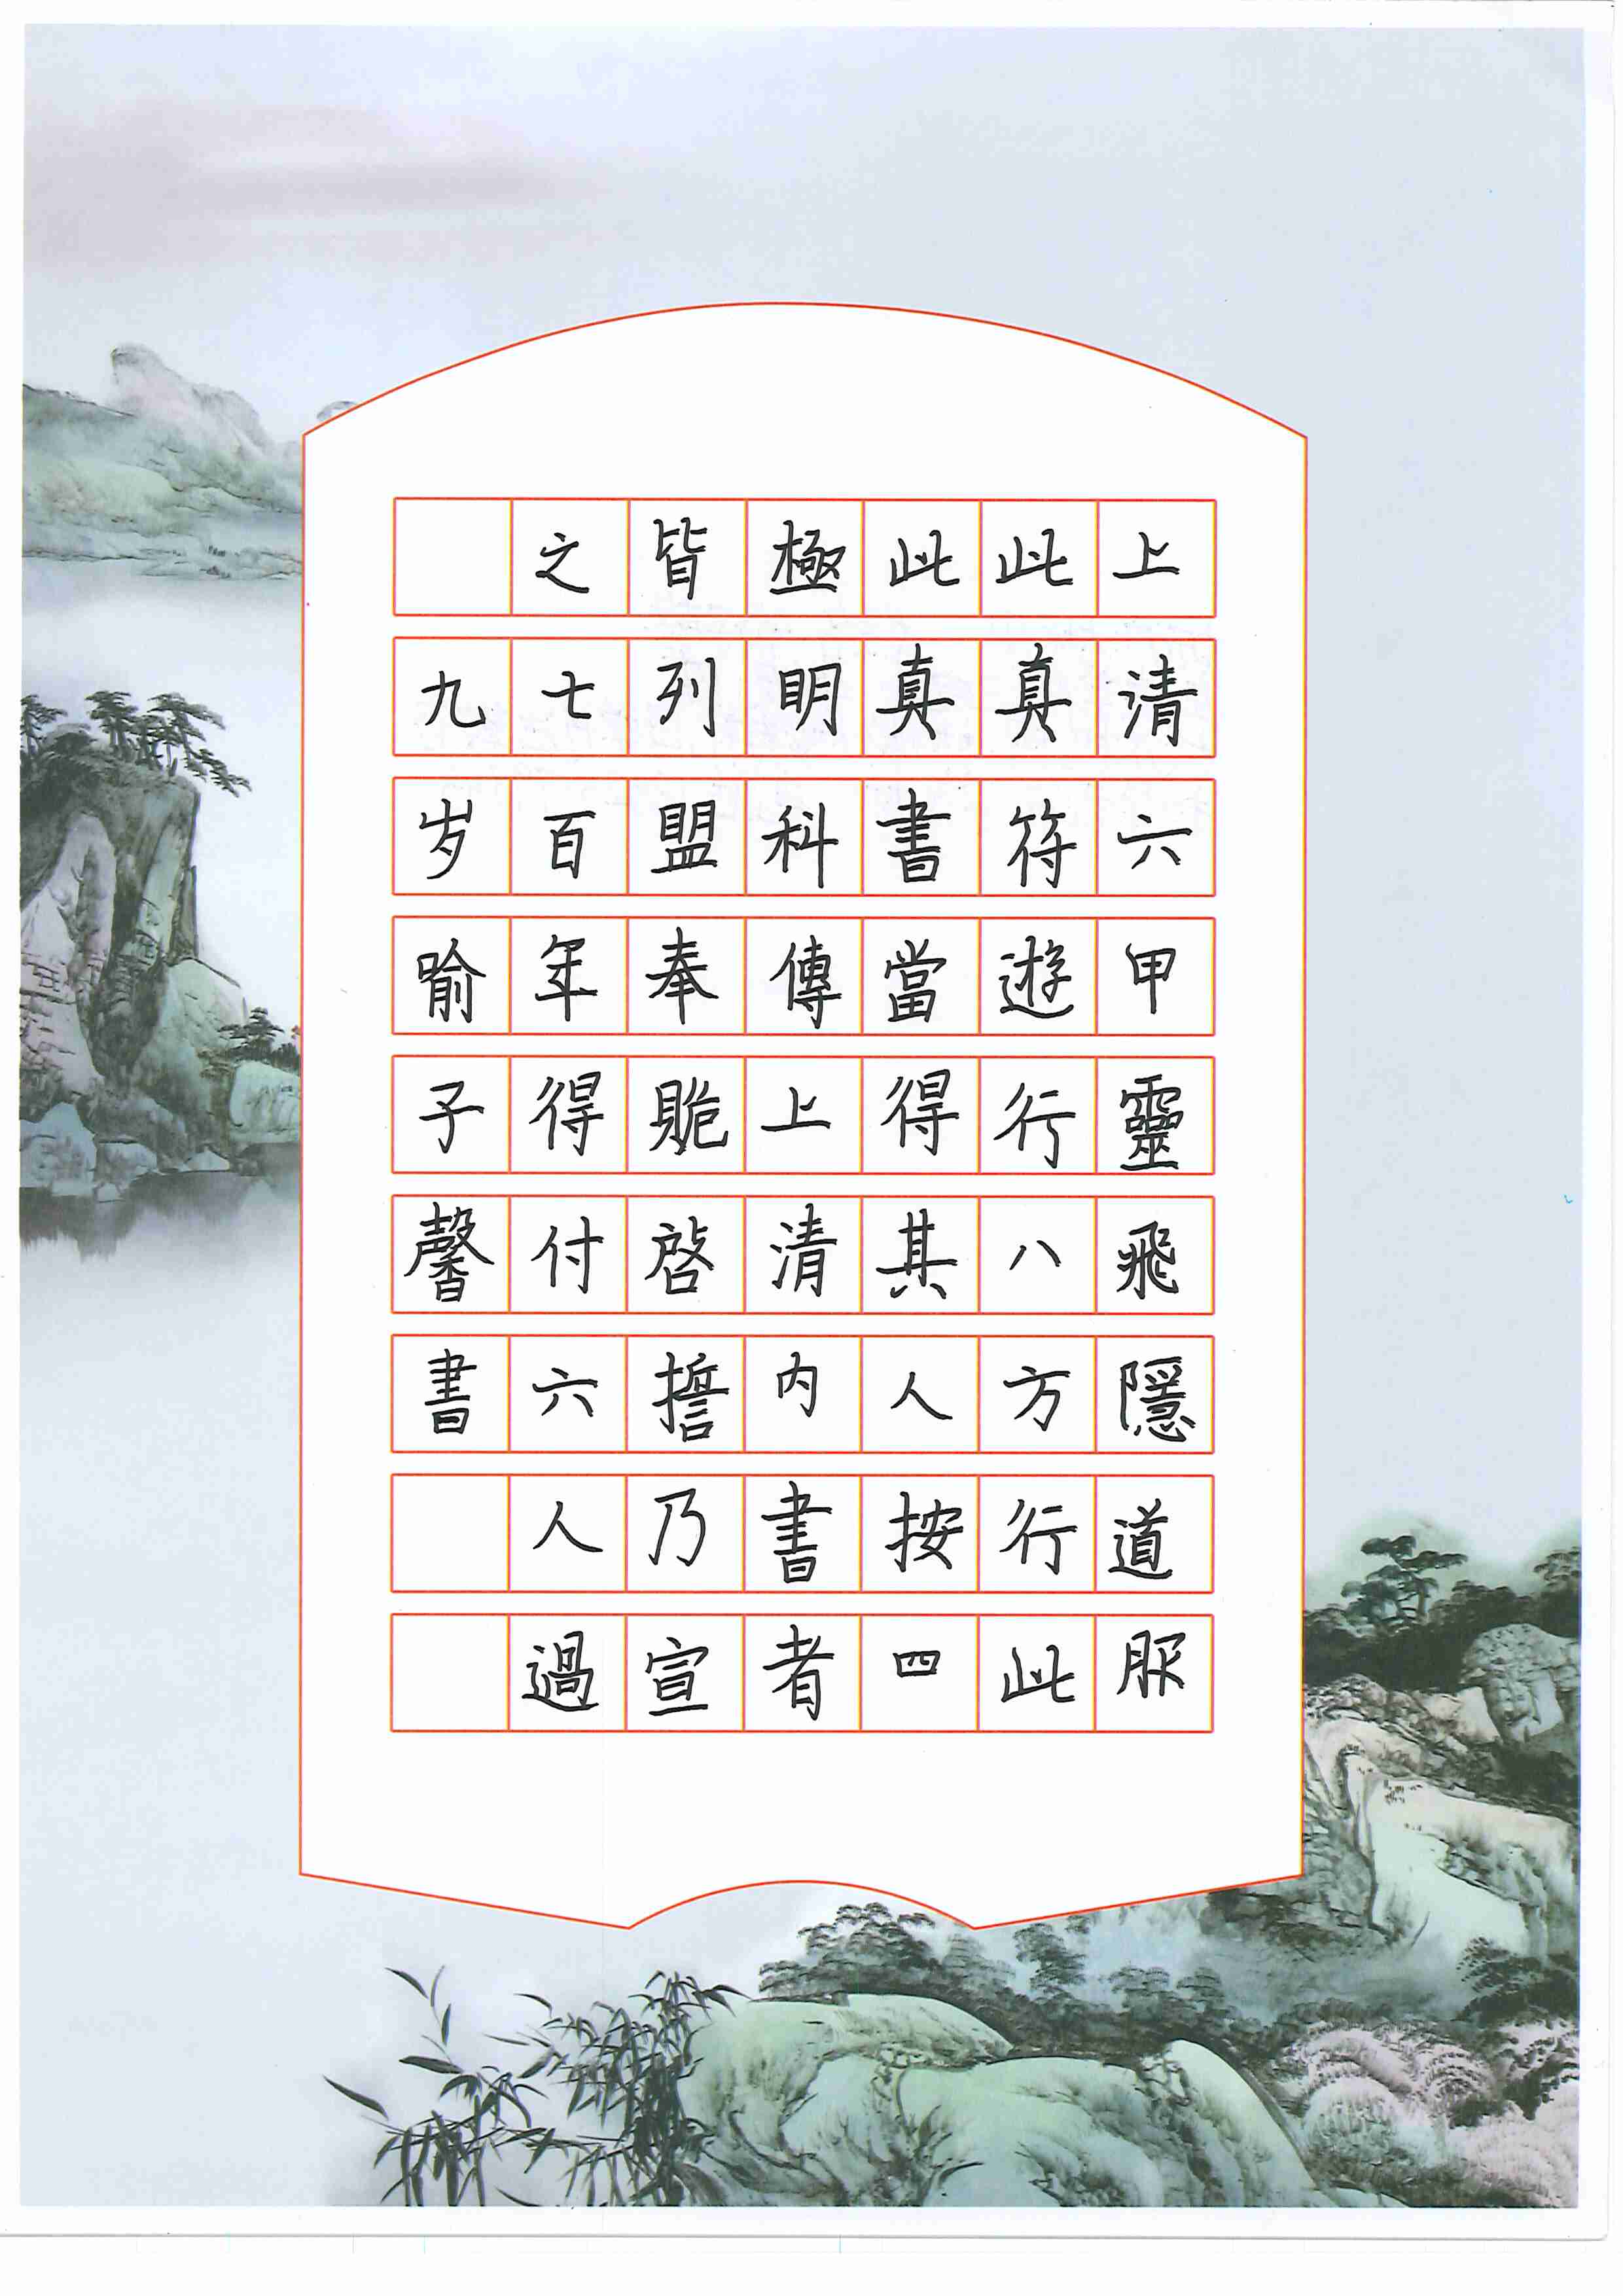 上清六甲靈飛隱道服
此真符遊行八方行此
此真書當得其人按四
極明科傳上清內書者
皆列盟奉貹啓擔乃宣
之七百年得付六人過
九岁喻子馨書